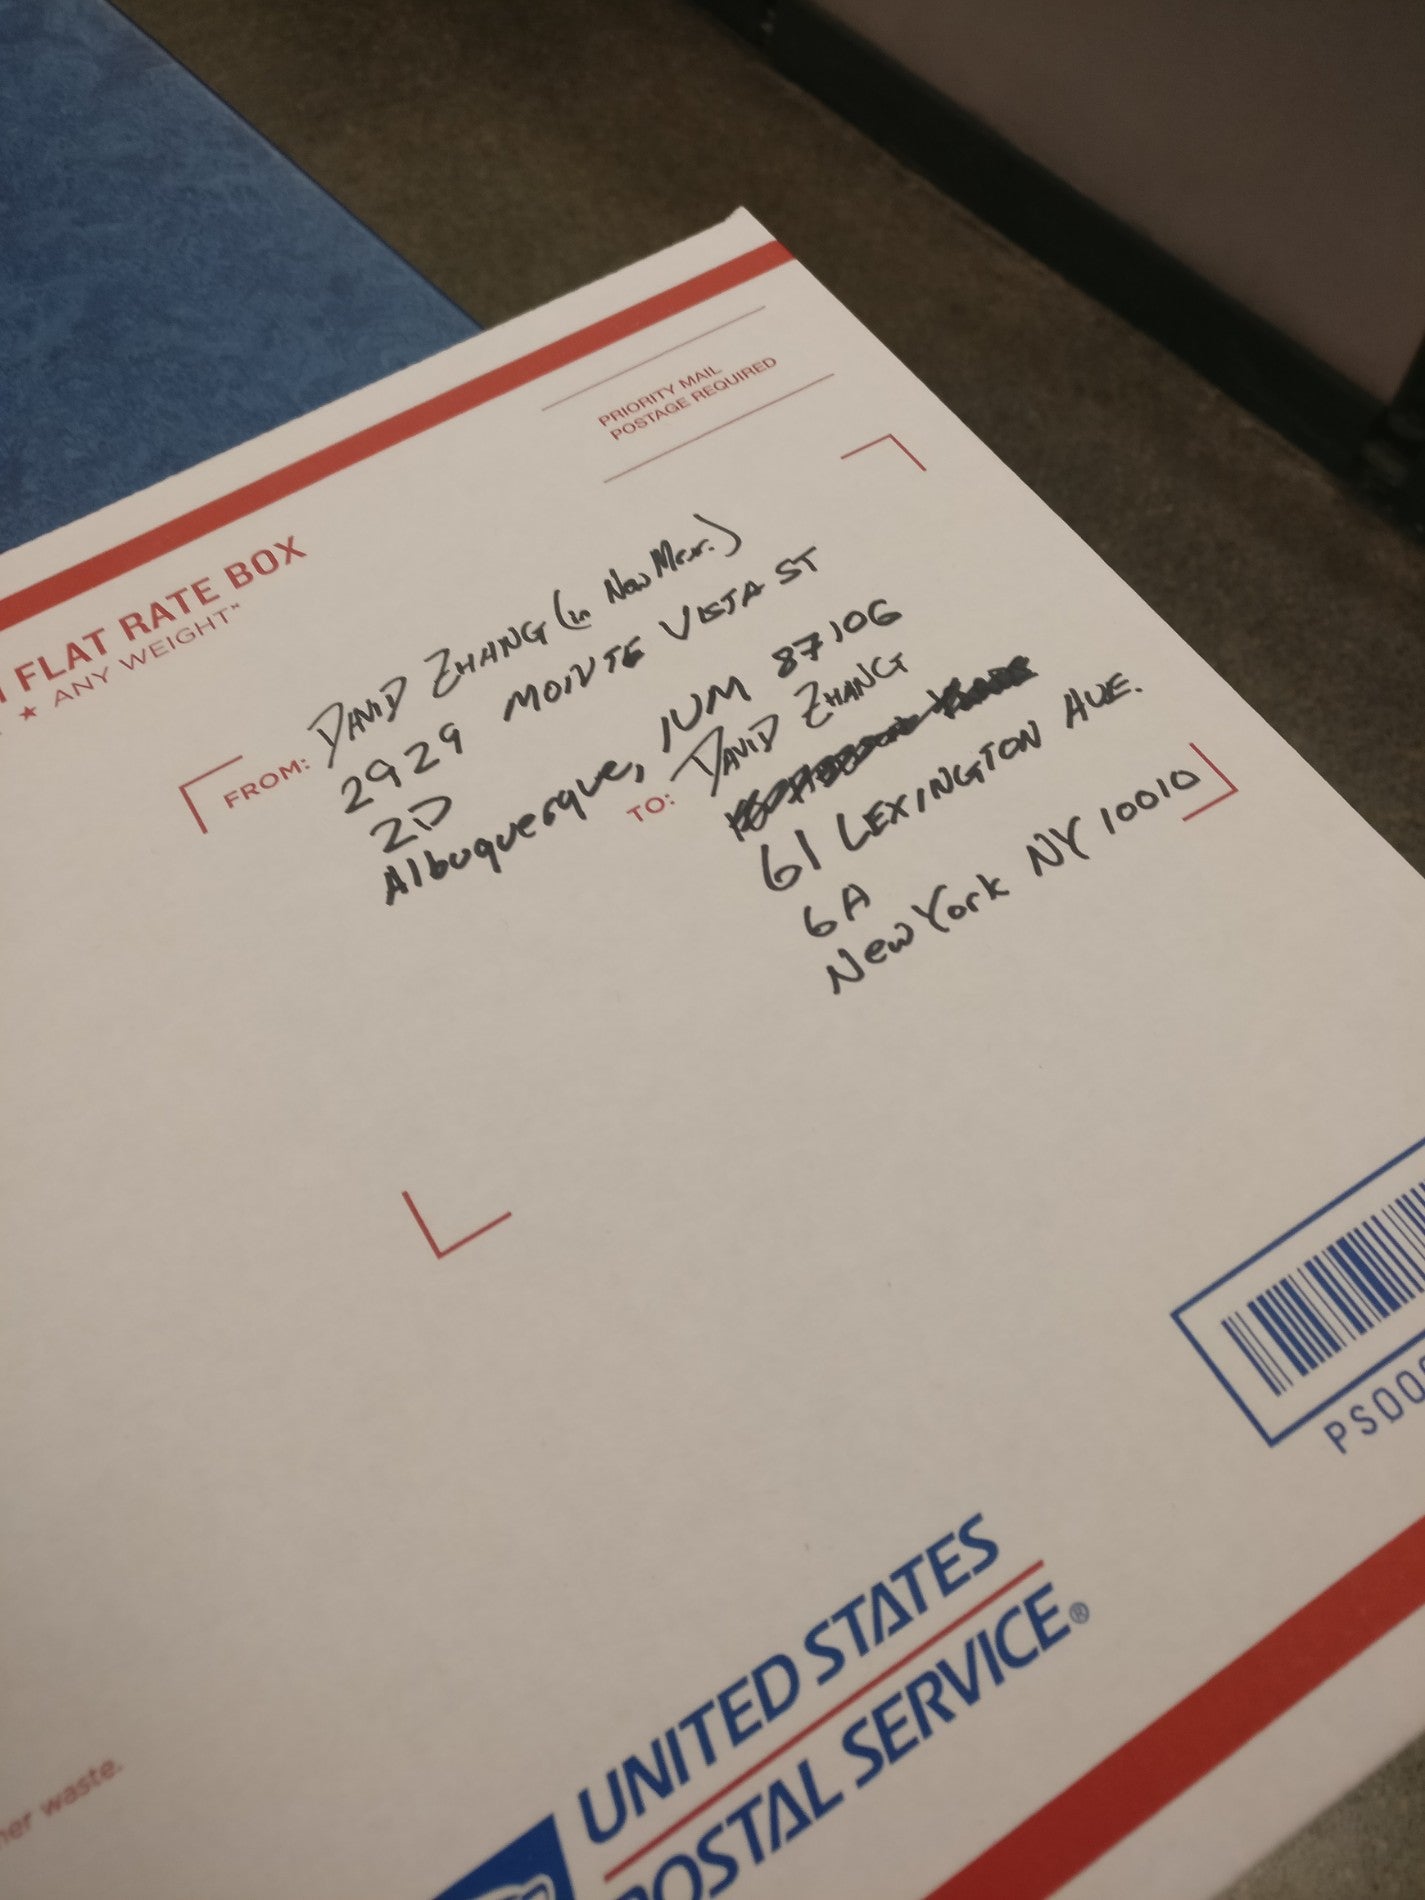 PRIORITY MAIL
POSTAGE REQUIRED
FLAT RATE BOX
★ ANY WEIGHT™
FROM: DAVID ZHANG (in New Mex.)
2929 MONTE VISTA ST
2D
Albuquerque, NM 87106
TO: DAVID ZHANG
61 LEXINGTON AVE.
6A
New York NY 10010
PSD0
UNITED STATES
POSTAL SERVICE®
her waste.